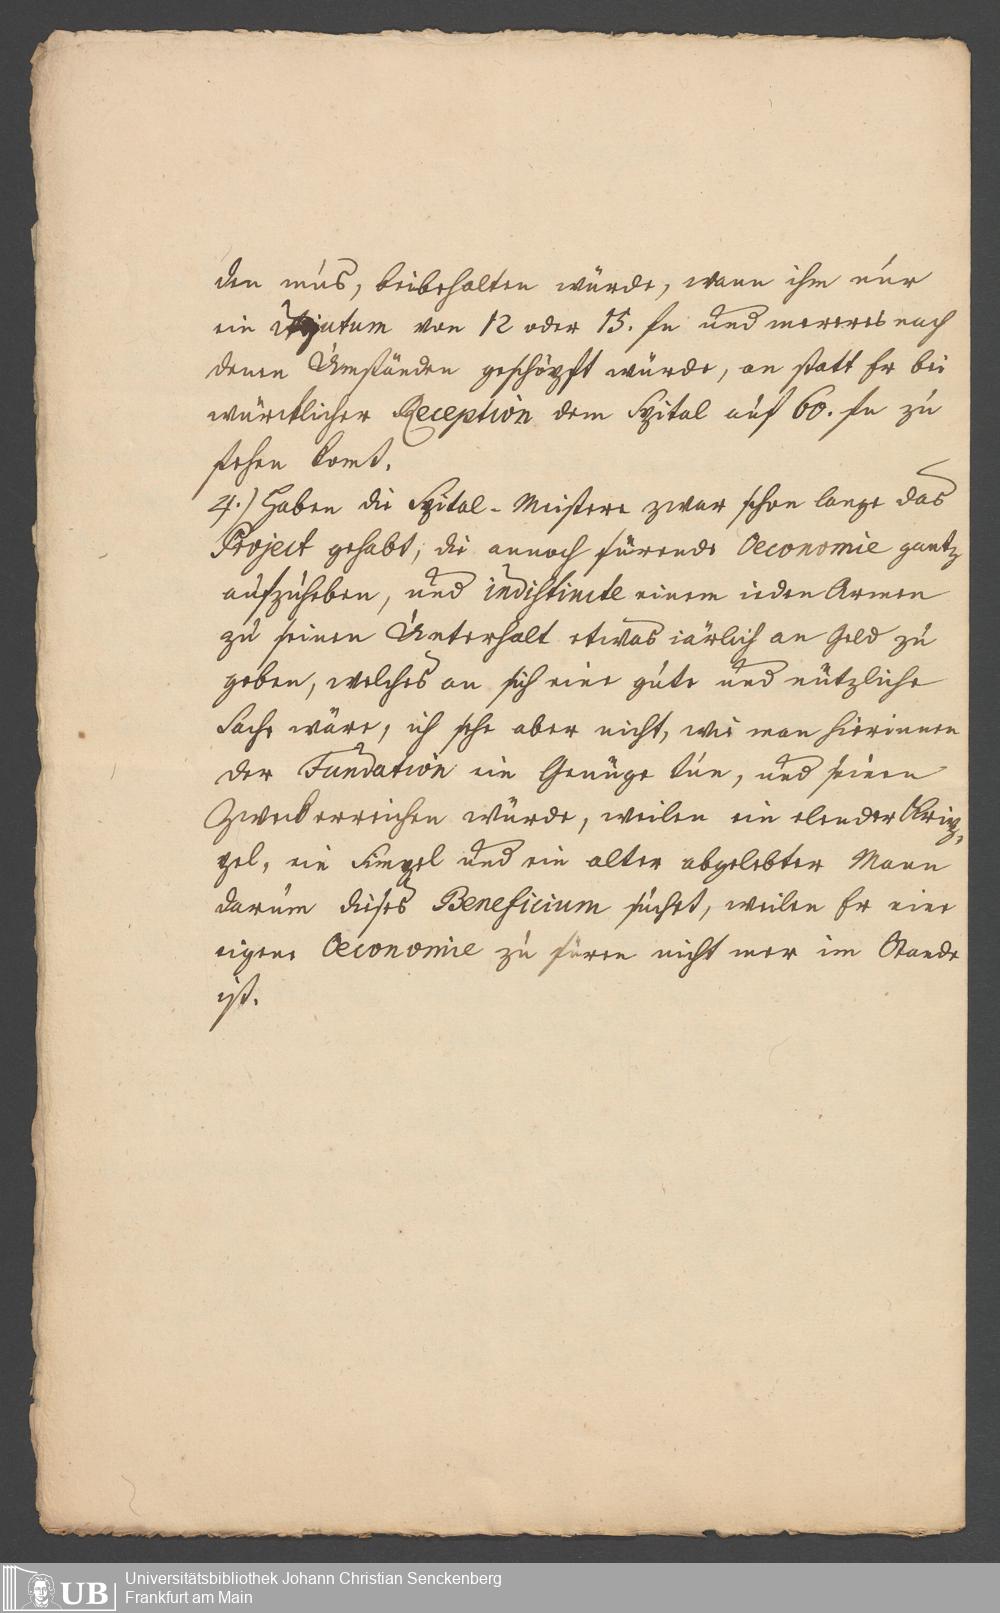 den mus, beibehalten würde, wann ihm nur
ein adjutum von 12 oder 15. fn und mereres nach
denen Umständen geschöpft würde, an statt Er bei
würcklicher Reception dem Spital auf 60. fn zu
stehen komt.
4.) Haben die Spital-Meistere zwar schon lange das
Project gehabt, die annoch fürende Oeconomie gantz
aufzuheben, und indistincte einem ieden Armen
zu seinen Unterhalt etwas iärlich an Geld zu
geben, welches an sich eine gute und nützliche
Sache wäre, ich sehe aber nicht, wie man hierinnen
der Fundation ein Genüge tun, und seinen
Zweck erreichen würde, weilen ein elender Krip,
pel, ein Simpel und ein alter abgelebter Mann
darum dieses Beneficium suchet, weilen Er eine
eigene Oeconomie zu füren nicht mer im Stande
ist.
UB
Universitätsbibliothek Johann Christian Senckenberg
Frankfurt am Main